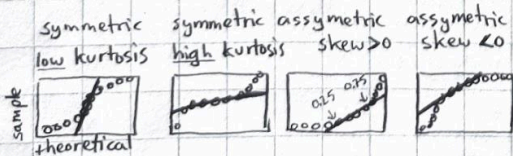 symmetric symmetric assymetric assymetric
low kurtosis high kurtosis skew>0 skew<0
0.25 0.75
sample
theoretical